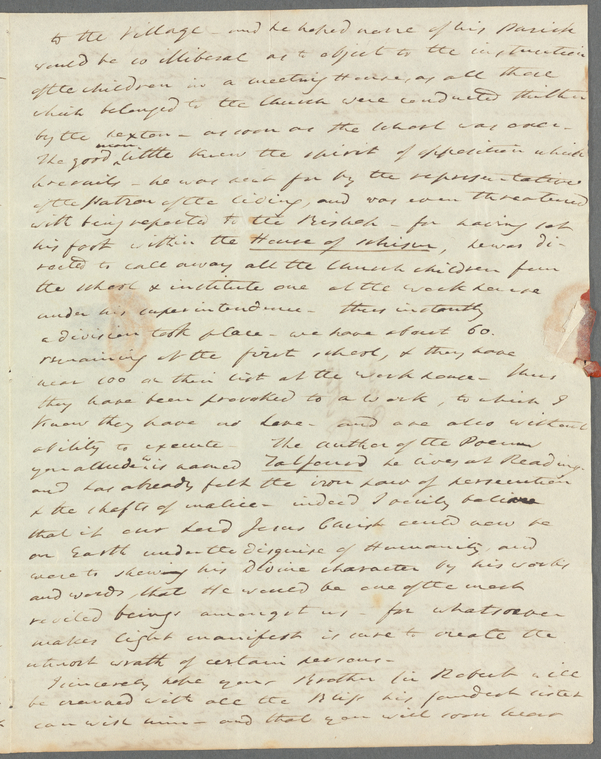 to the Village - and he hoped none of his Parish
would be so illiberal as to object to the instruction
of the children in a meeting House, as all those
which belonged to the Church were conducted thither
by the sexton - as soon as the school was over -
The good man little knew the spirit of opposition which
prevails - he was sent for by the representative
of the Patron of the living, and was even threatened
with being reported to the Bishop - for having set
his foot within the House of schism, he was di-
rected to call away all the Church children from
the school & institute one at the work house
under his superintendence - thus instantly
a division took place - we have about 60.
remaining at the first school, & they have
near 100 on their list at the work house - thus
they have been provoked to a work, to which I
know they have no Love - and are also without
ability to execute - The author of the Poems
you allude to is named Talfourd he lives at Reading.
and has already felt the iron paw of persecution
& the shafts of malice - indeed I verily believe
that if our Lord Jesus Christ could now be
on Earth under the disguise of Humanity, and
were to shewing his Divine character by his works
and words, that He would be one of the most
reviled beings amongst us - for whatsoever
makes light manifest is sure to create the
utmost wrath of certain persons -
I sincerely hope your Brother Sir Robert will
be crowned with all the Bliss his fondest sister
can wish him - and that you will soon hear